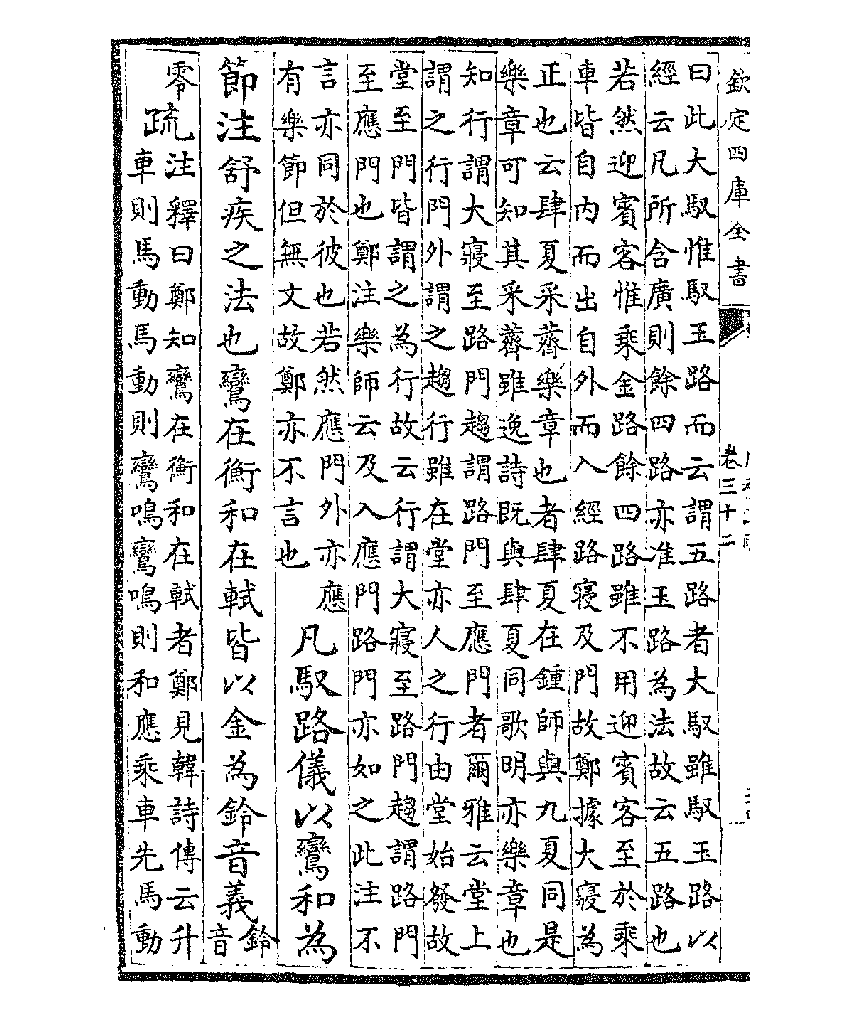 欽定四庫全書
卷三十二
曰此大馭惟馭玉路而云謂五路者大馭雖馭玉路以
經云凡所含廣則餘四路亦准玉路為法故云五路也
若然迎賓客惟乘金路餘四路雖不用迎賓客至於乘
車皆自內而出自外而入經路寢及門故鄭據大寢為
正也云肆夏采薺樂章也者肆夏在鍾師與九夏同是
樂章可知其采薺雖逸詩既與肆夏同歌明亦樂章也
知行謂大寢至路門趨謂路門至應門者爾雅云堂上
謂之行門外謂之趨行雖在堂亦人之行由堂始發故
堂至門皆謂之為行故云行謂大寢至路門趨謂路門
至應門也鄭注樂師云及入應門路門亦如之此注不
言亦同於彼也若然應門外亦應
有樂節但無文故鄭亦不言也
凡馭路儀以鸞和為
節注舒疾之法也鸞在衡和在軾皆以金為鈴音義鈴音
零疏
注釋曰鄭知鸞在衡和在軾者鄭見韓詩傳云升
車則馬動馬動則鸞鳴鸞鳴則和應乘車先馬動